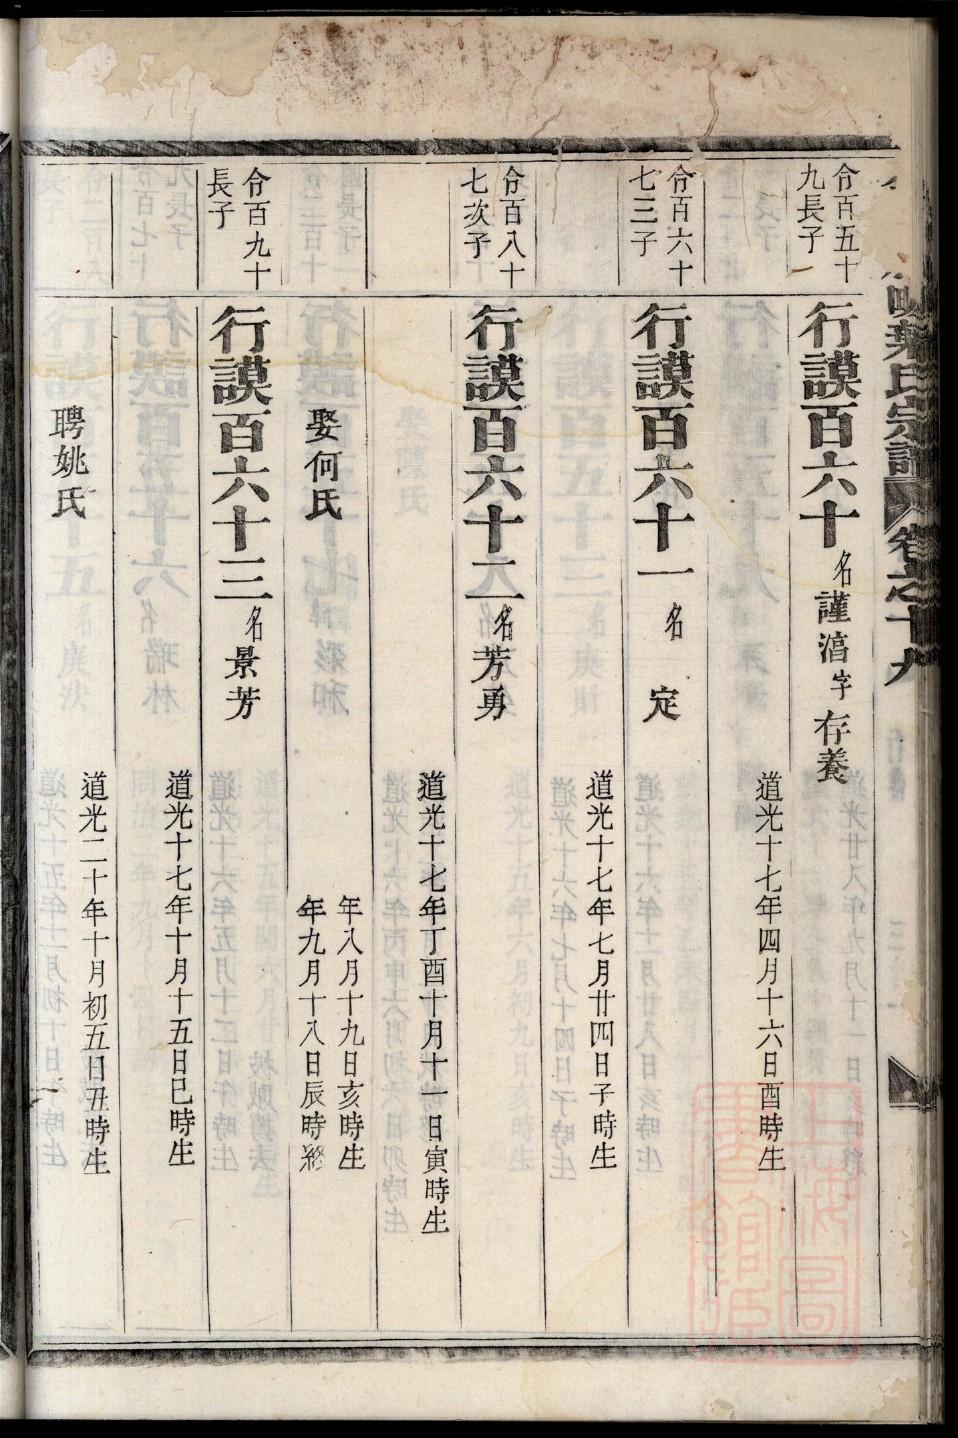 葉氏宗譜 卷之十九
令百五十
九長子
行謨百六十 名謹湻字存養
道光十七年四月十六日酉時生
令百六十
七三子
行謨百六十一 名定
道光十七年七月廿四日子時生
令百八十
七次子
行謨百六十二 名芳勇
道光十七年丁酉十月十一日寅時生
娶何氏
年八月十九日亥時生
年九月十八日辰時終
令百九十
長子
行謨百六十三 名景芳
道光十七年十月十五日巳時生
聘姚氏
道光二十年十月初五日丑時生
上海圖書館藏